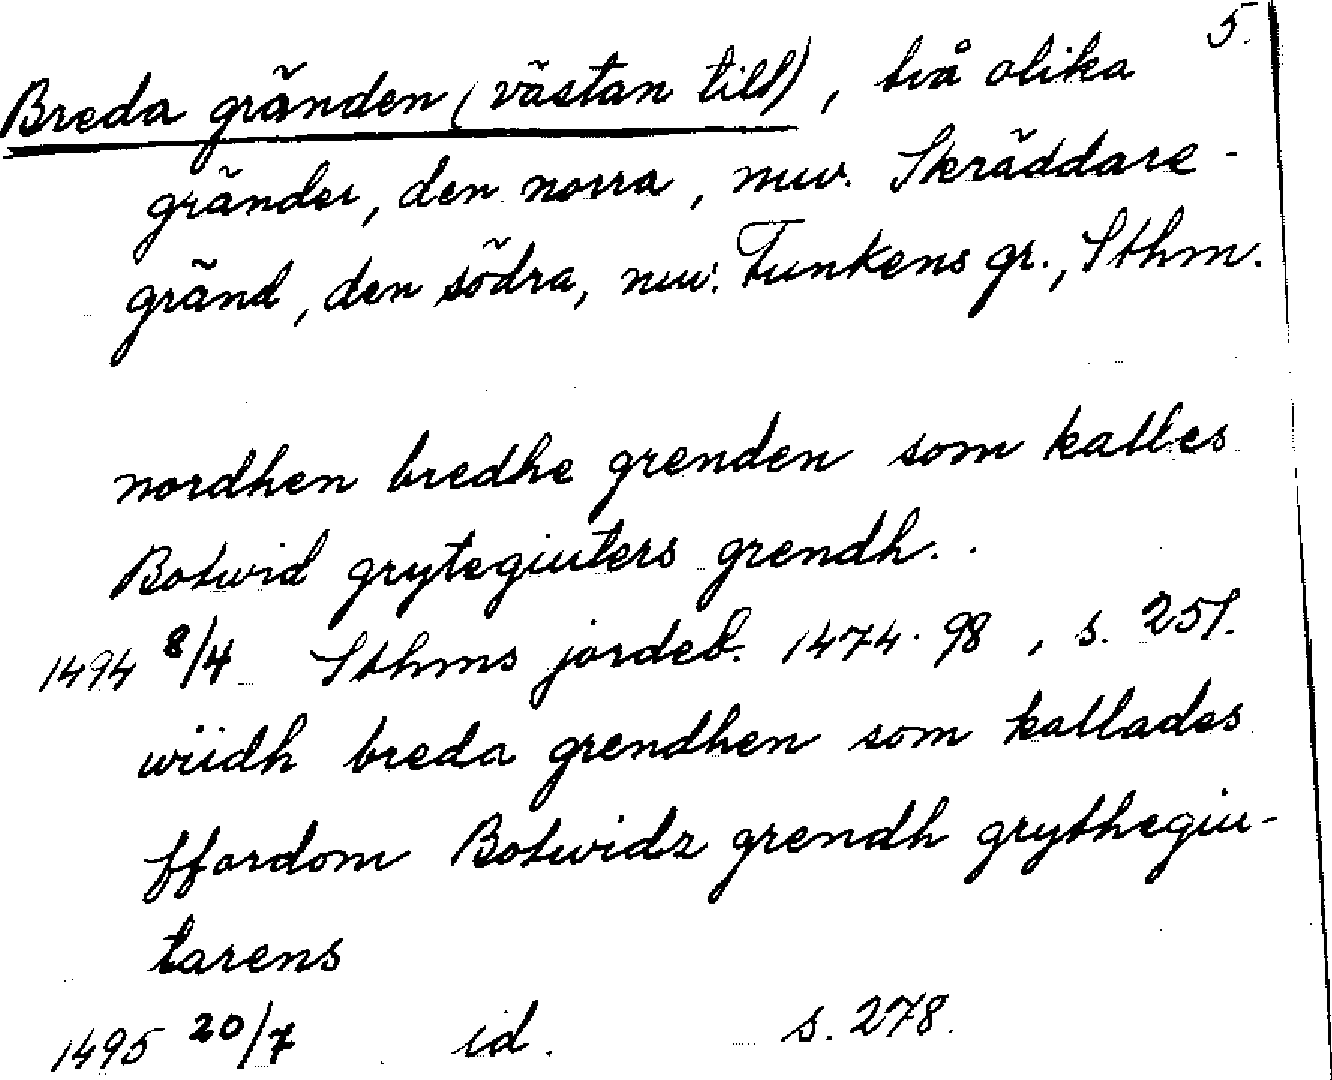 5.
Breda gränden (västan till), två olika
gränder, den norra, nuv. Skräddare-
gränd, den södra, nuv. Funkens gr., Sthm.
nordhen bredhe grenden som kalles
Botwid grytegiuters grendh. .
1494 8/4 Sthms jordeb. 1474-98, s. 251.
wiidh breda grendhen som kallades
ffordom Botwidz grendh grythegiu-
tarens
1495 20/7 id. s. 278.